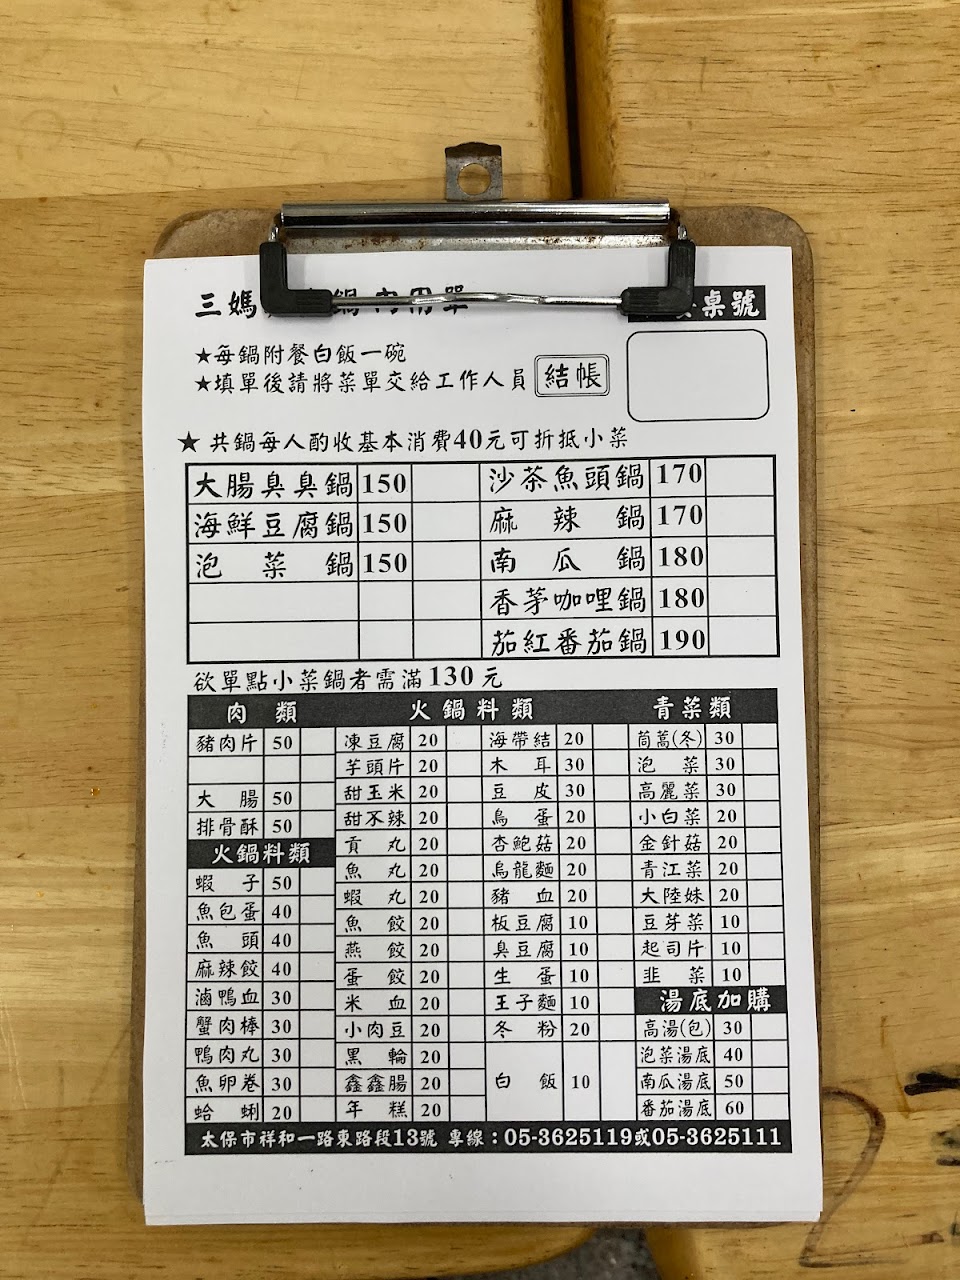 三媽 鍋內用單
桌號
★每鍋附餐白飯一碗
★填單後請將菜單交給工作人員 結帳
★ 共鍋每人酌收基本消費40元可折抵小菜
大腸臭臭鍋 150 沙茶魚頭鍋 170
海鮮豆腐鍋 150 麻辣鍋 170
泡菜鍋 150 南瓜鍋 180
香茅咖哩鍋 180
茄紅番茄鍋 190
欲單點小菜鍋者需滿130元
肉類 火鍋料類 青菜類
豬肉片 50 凍豆腐 20 海帶結 20 茼蒿(冬) 30
芋頭片 20 木耳 30 泡菜 30
大腸 50 甜玉米 20 豆皮 30 高麗菜 30
排骨酥 50 甜不辣 20 鳥蛋 20 小白菜 20
火鍋料類 貢丸 20 杏鮑菇 20 金針菇 20
蝦子 50 魚丸 20 烏龍麵 20 青江菜 20
魚包蛋 40 蝦丸 20 豬血 20 大陸妹 20
魚頭 40 魚餃 20 板豆腐 10 豆芽菜 10
麻辣餃 40 燕餃 20 臭豆腐 10 起司片 10
滷鴨血 30 蛋餃 20 生蛋 10 韭菜 10
蟹肉棒 30 米血 20 王子麵 10 湯底加購
鴨肉丸 30 小肉豆 20 冬粉 20 高湯(包) 30
魚卵卷 30 黑輪 20 白飯 10 泡菜湯底 40
蛤蜊 20 鑫鑫腸 20 南瓜湯底 50
年糕 20 番茄湯底 60
太保市祥和一路東路段13號 專線：05-3625119或05-3625111
2